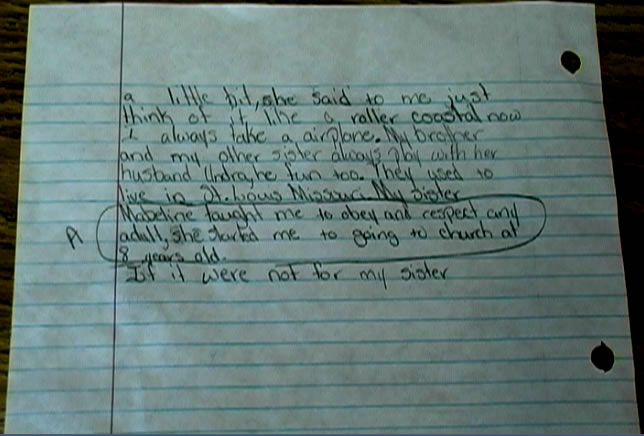 a little bit, she said to me just
think of it like a roller coostal now
I always take a airplone. My brother
and my other sister always play with her
husband Undra, he fun too. They used to
live in St. Louis Missouri. My sister
Mabeline taught me to obey and respect any
A adult, she started me to going to church at
8 years old.
If it were not for my sister